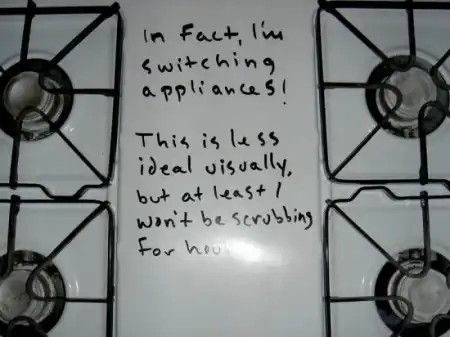 In Fact, I'm
switching
appliances!
This is less
ideal visually,
but at least I
won't be scrubbing
for